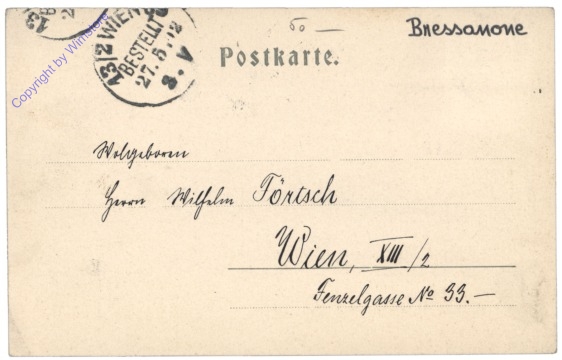 Bressanone
50 —
13/2 WIEN
BESTELLT
27. 5. 02
8. V
Copyright by Winstore
Postkarte.
Wolgeboren
Herrn Wilhelm Förtsch
Wien, XIII/2
Fenzelgasse No 33.—